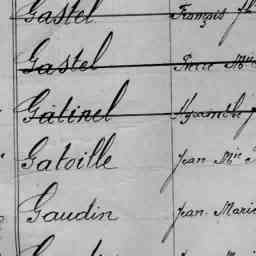 Gastel François
Gastel
Gatinel Hyacinthe
Gatoille Jean Mie
Gaudin Jean Marie